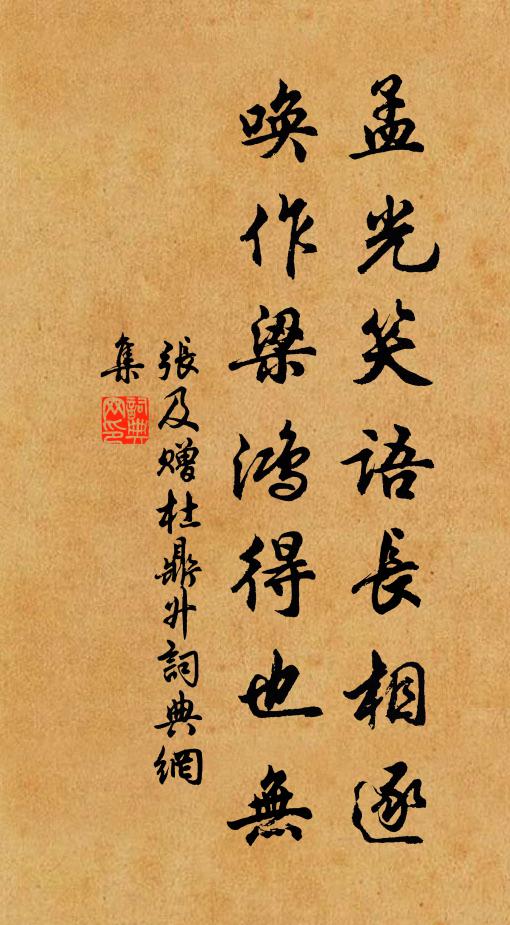 孟光笑語長相逐
喚作梁鴻得也無
張及贈杜鼎升詞典網
集
詞典網印